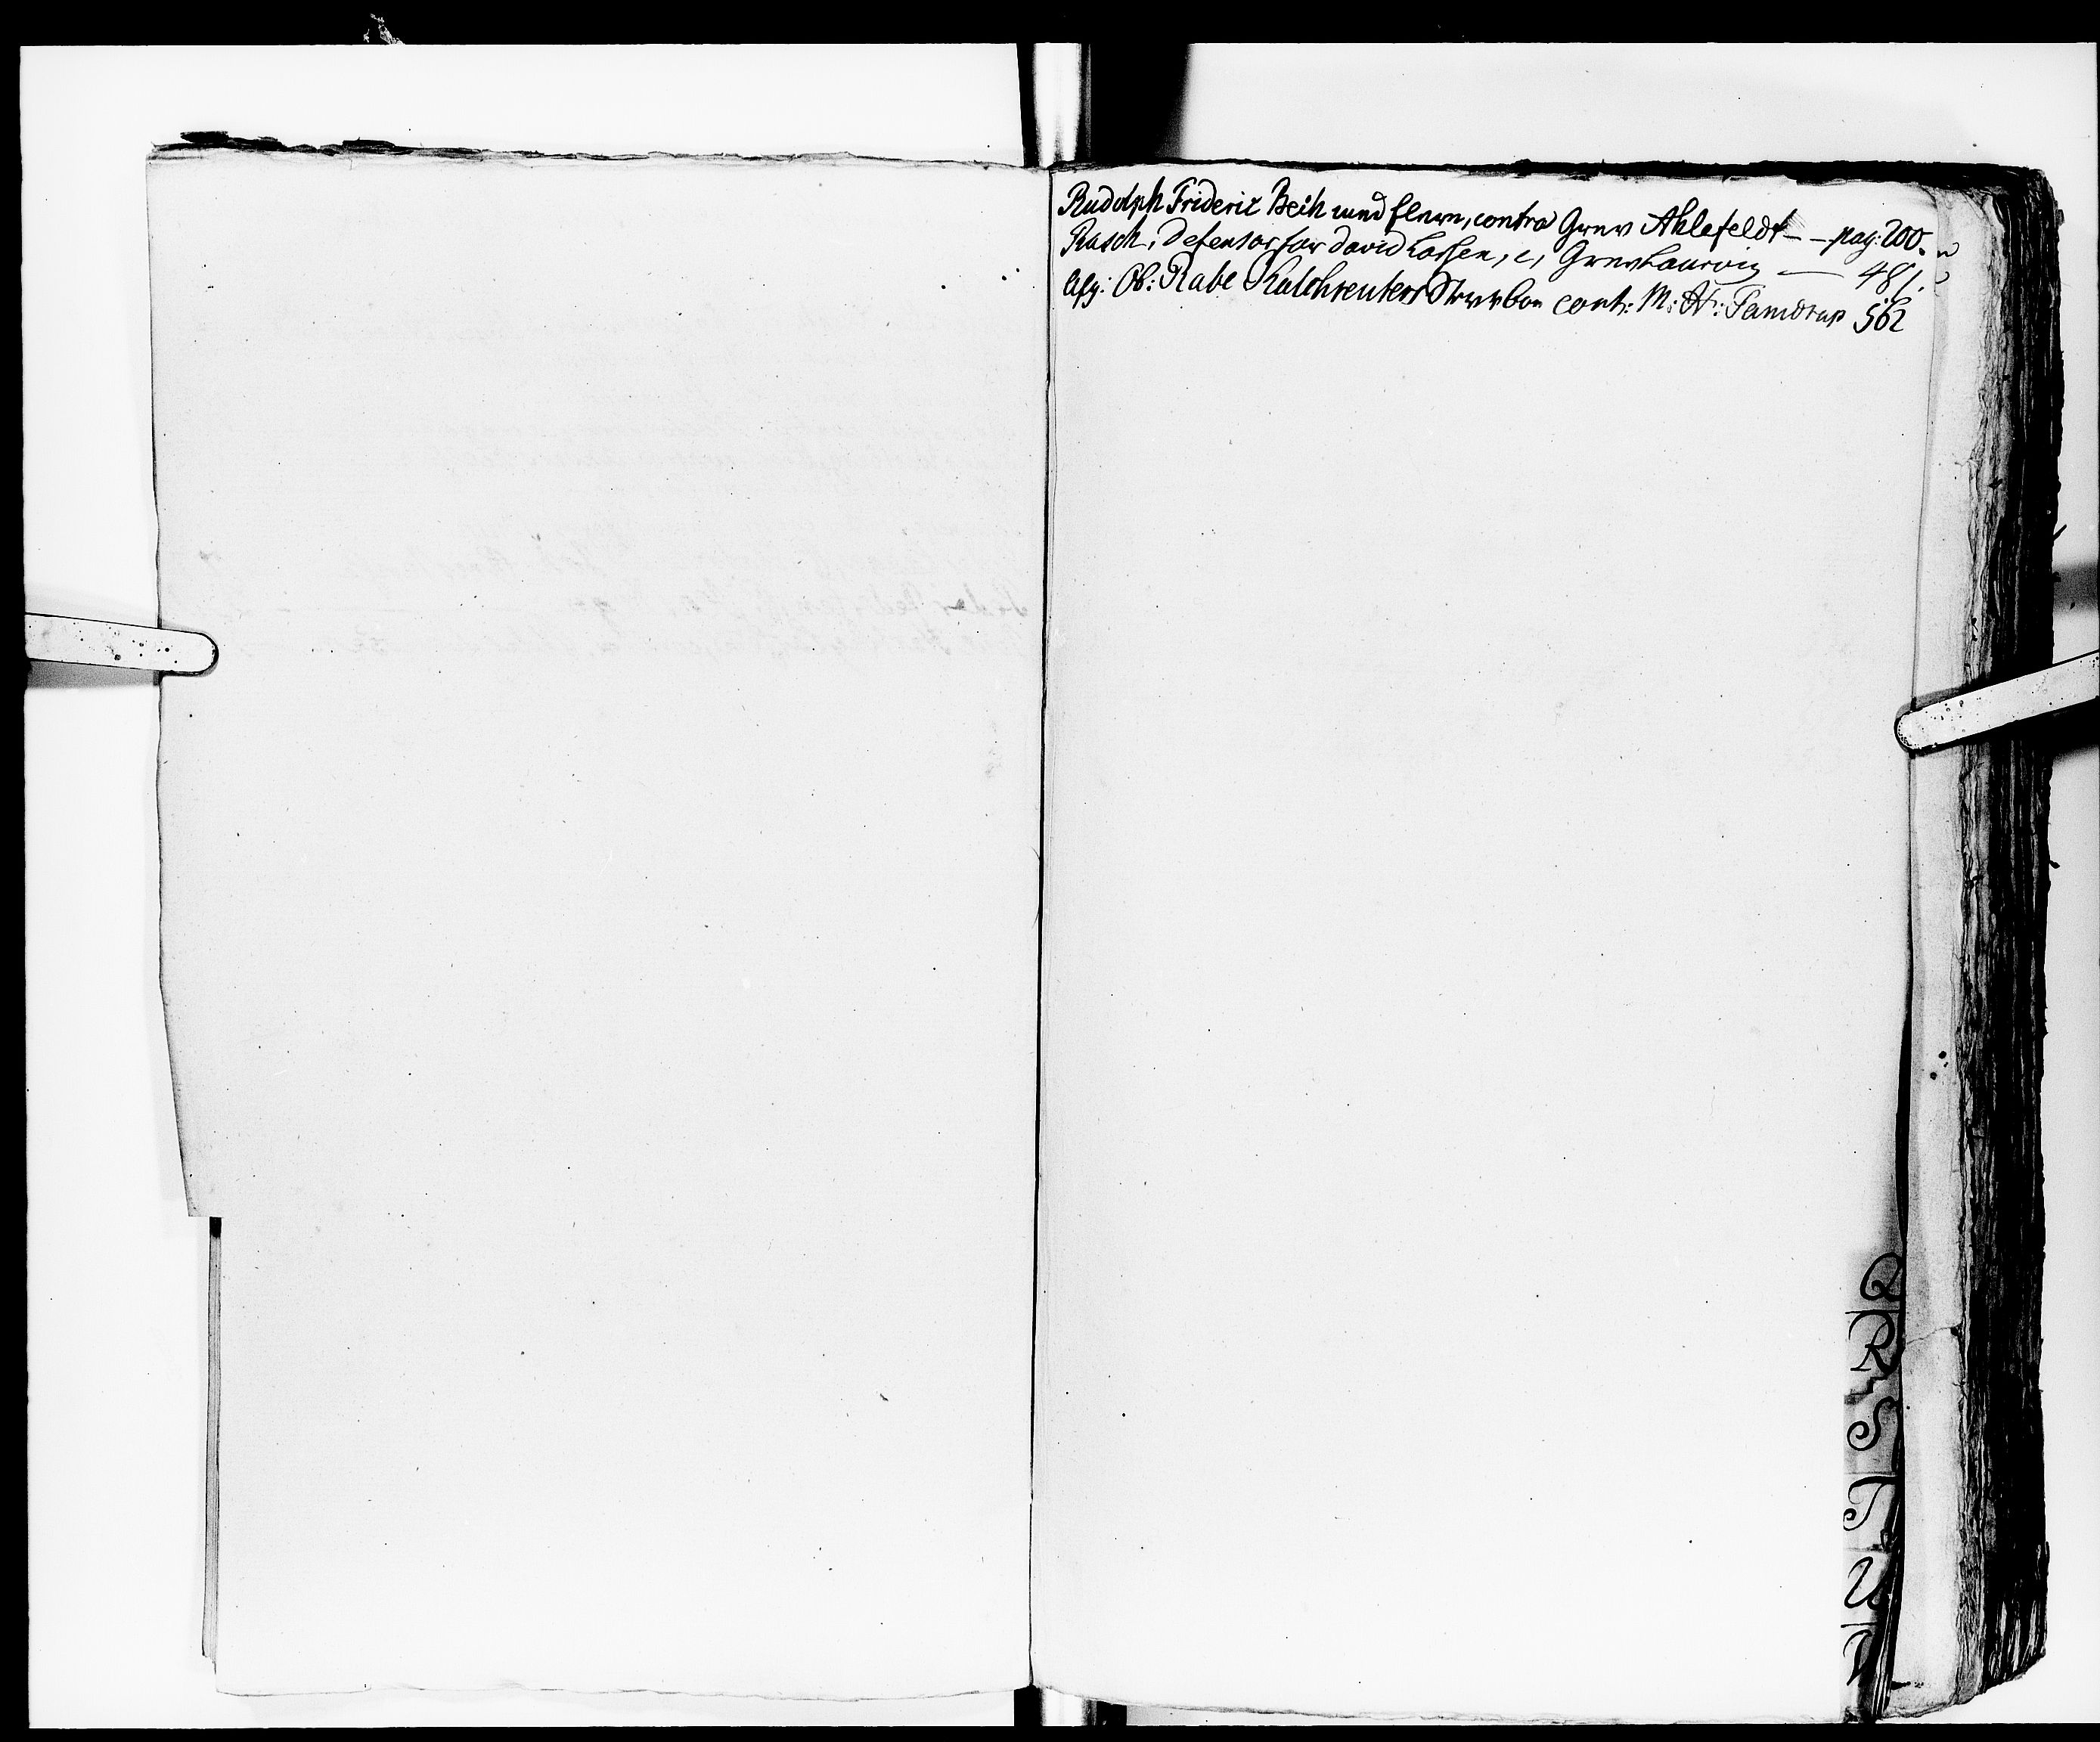 Rudolph Frideric Beih med fleere, contra Grev Ahlefeldt — — pag: 200.
Rasch, Defensor for David Lassen, c, Grev Laurvig — 481.
Afg: Ob: Rabe Kalckreuters Sterrboe cont: M: H: Tamdrup 562
Q
R
S
T
U